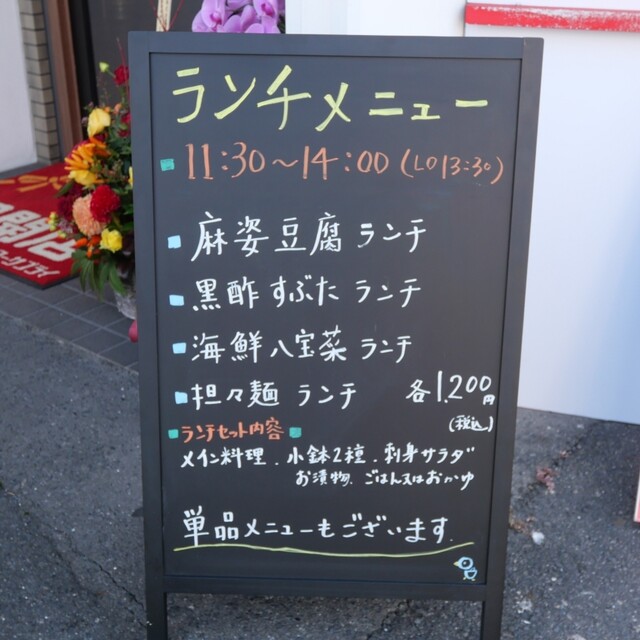 ランチメニュー
11:30〜14:00 (LO13:30)
麻姿豆腐 ランチ
黒酢 すぶた ランチ
海鮮八宝菜 ランチ
担々麺 ランチ 各1,200円
(税込)
ランチセット内容
メイン料理．小鉢2種．刺身サラダ
お漬物．ごはん又はおかゆ
単品メニューもございます．